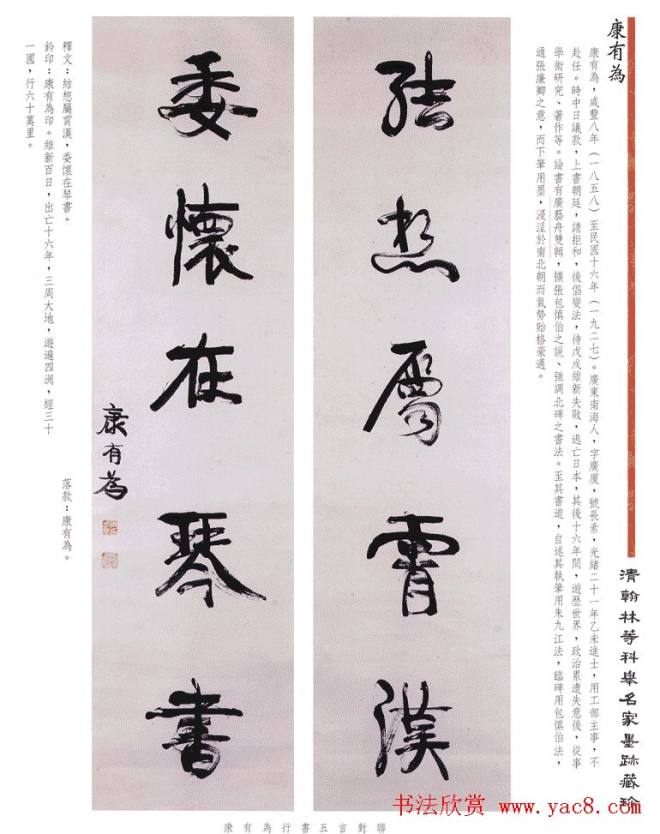 清翰林等科舉名家墨跡藏珍
康有為
康有為，咸豐八年（一八五八）至民國十六年（一九二七）。廣東南海人，字廣廈，號長素，光緒二十一年乙未進士，用工部主事，不
赴任。時中日議款，上書朝廷，請拒和，後倡變法，待戊戌維新失敗，逃亡日本，其後十六年間，遊歷世界，政治累遭失意後，從事
學術研究、著作等。論書有廣藝舟雙輯，擴張包慎伯之說、強調北碑之書法。至其書道，自述其執筆用朱九江法，臨碑用包慎伯法，
通張廉卿之意，而下筆用墨，浸淫於南北朝而氣勢貽格豪邁。
結想屬霄漢
委懷在琴書
康有為
釋文：結想屬霄漢，委懷在琴書。
落款：康有為。
鈐印：康有為印。維新百日，出亡十六年，三周大地，遊遍四洲，經三十
一國，行六十萬里。
康有為行書五言對聯
书法欣赏 www.yac8.com